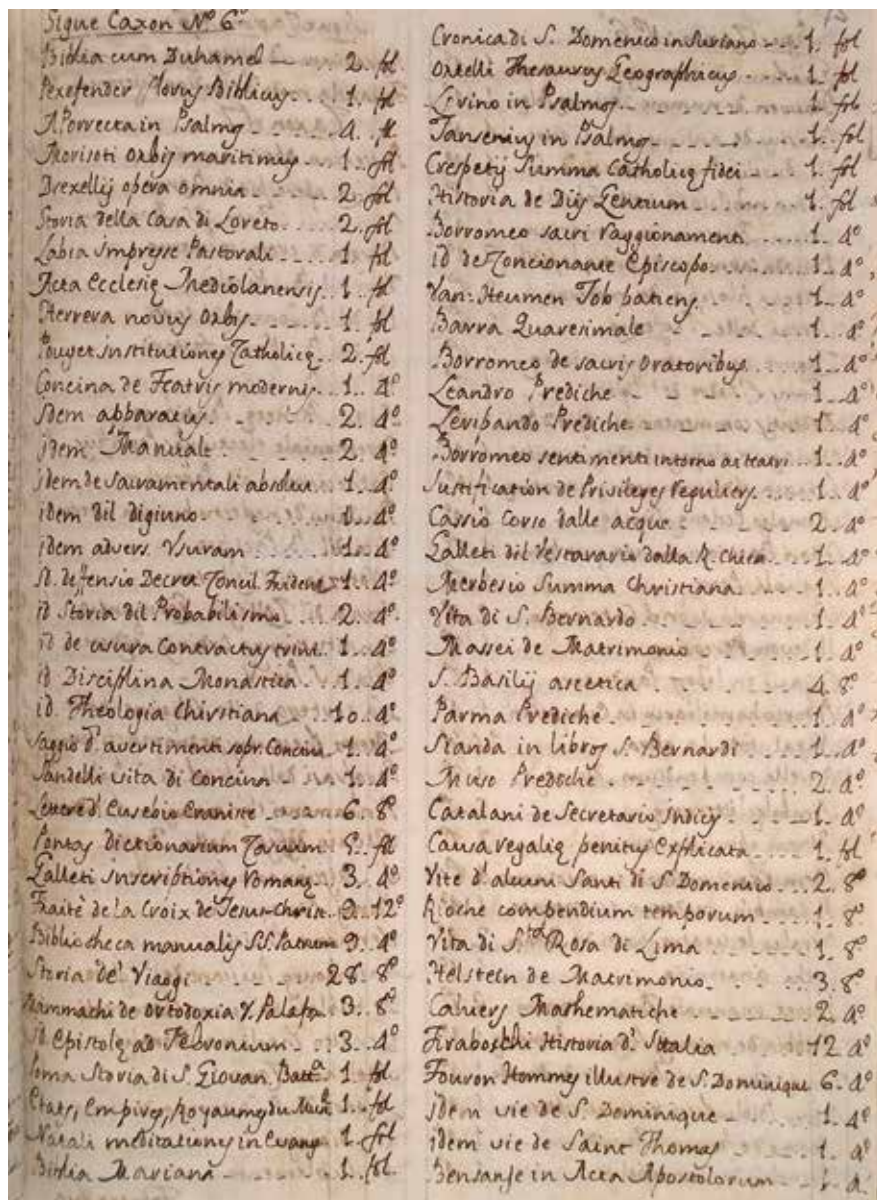 Sigue Caxon Nº 6º
Biblia cum Duhamel 2. fol
Novus Biblicus 1. fol
A Porrecta in Psalmos 4. fl
Morisoti Orbis maritimus 1. fol
Drexellij opera omnia 2 fol
Storia della Casa di Loreto 2. fol
Labia Imprese Pastorali 1 fol
Acta Ecclesie Mediolanensis 1. fol
Herrera novus Orbis 1. fol
Pouget institutiones Catholicę 2. fol
Concina de Teatris modernis 1. 4º
Idem abbaratus 2. 4º
idem Manuale 2. 4º
idem de sacramentali absolut. 1. 4º
idem dil digiuno 4º
idem advers. Usuram 1. 4º
Id. defensio Decret. Concil. Trident. 1. 4º
id Storia dil Probabilismo 2. 4º
id de usura Contractus trini 1. 4º
id Disciplina Monastica 1. 4º
id. Theologia Chirstiana 10. 4º
Saggio d'avertimenti sopr. Concina 1. 4º
Sandelli vita di Concina 1. 4º
Lettere d'Eusebio Eraniste 6. 8º
Pontas dictionarium Casuum fol
Galleti inscriptiones Romanę 3. 4º
Traité de la Croix de Jesus-Christ 9. 12º
Bibliotheca manualis S.S. Patrum 9. 4º
Storia de' Viaggi 28. 8º
Mammachi de Ortodoxia 3. 8º
id Epistolę ad Febronium 3. 4º
Storia di S. Giovan Battª 1 fol
Etats, Empires, Royaumes du 1. fol
Natali meditationes in Evang. 1 fol
Biblia Mariana 1. fol.
Cronica di S. Domenico in Suriano 1. fol
Ortelli Thesaurus Geographicus 1. fol
in Psalmos 1. fol
Jansenius in Psalmos 1. fol
Crespetij Summa Catholicę fidei 1. fol
Historia de Dijs Gentium 1. fol
Borromeo sacri Raggionamenti 1. 4º
id de Concionante Episcopo 1. 4º
Job patiens 1. 4º
Barra Quaresimale 1. 4º
Borromeo de sacris Oratoribus 1. 4º
Leandro Prediche 1. 4º
Prediche 1. 4º
Borromeo sentimenti intorno ai teatri 1. 4º
Justification de Privileges Reguliers 1. 4º
Cassio Corso dalle acque 2. 4º
Galleti dil Vestarario dalla R. Chiesa 1. 4º
Merbesio Summa Christiana 1. 4º
Vita di S. Bernardo 1. 4º
Massei de Matrimonio 1. 4º
S. Basilij ascetica 4. 8º
Parma Prediche 1. 4º
in libros S. Bernardi 1. 4º
Muso Prediche 2. 4º
Catalani de Secretario Indicis 1. 4º
Causa regalię penitus Explicata 1. fol
Vite d'alcuni Santi di S. Domenico 2. 8º
compendium temporum 1. 8º
Vita di S.ta Rosa di Lima 1. 8º
Helstein de Matrimonio 3. 8º
Cahiers Mathematiche 2. 4º
Tiraboschi Historia d'Ittalia 12 4º
Touron Hommes illustre de S. Dominique 6. 4º
idem vie de S. Dominique 1. 4º
idem vie de Saint Thomas 1. 4º
in Acta Apostolorum